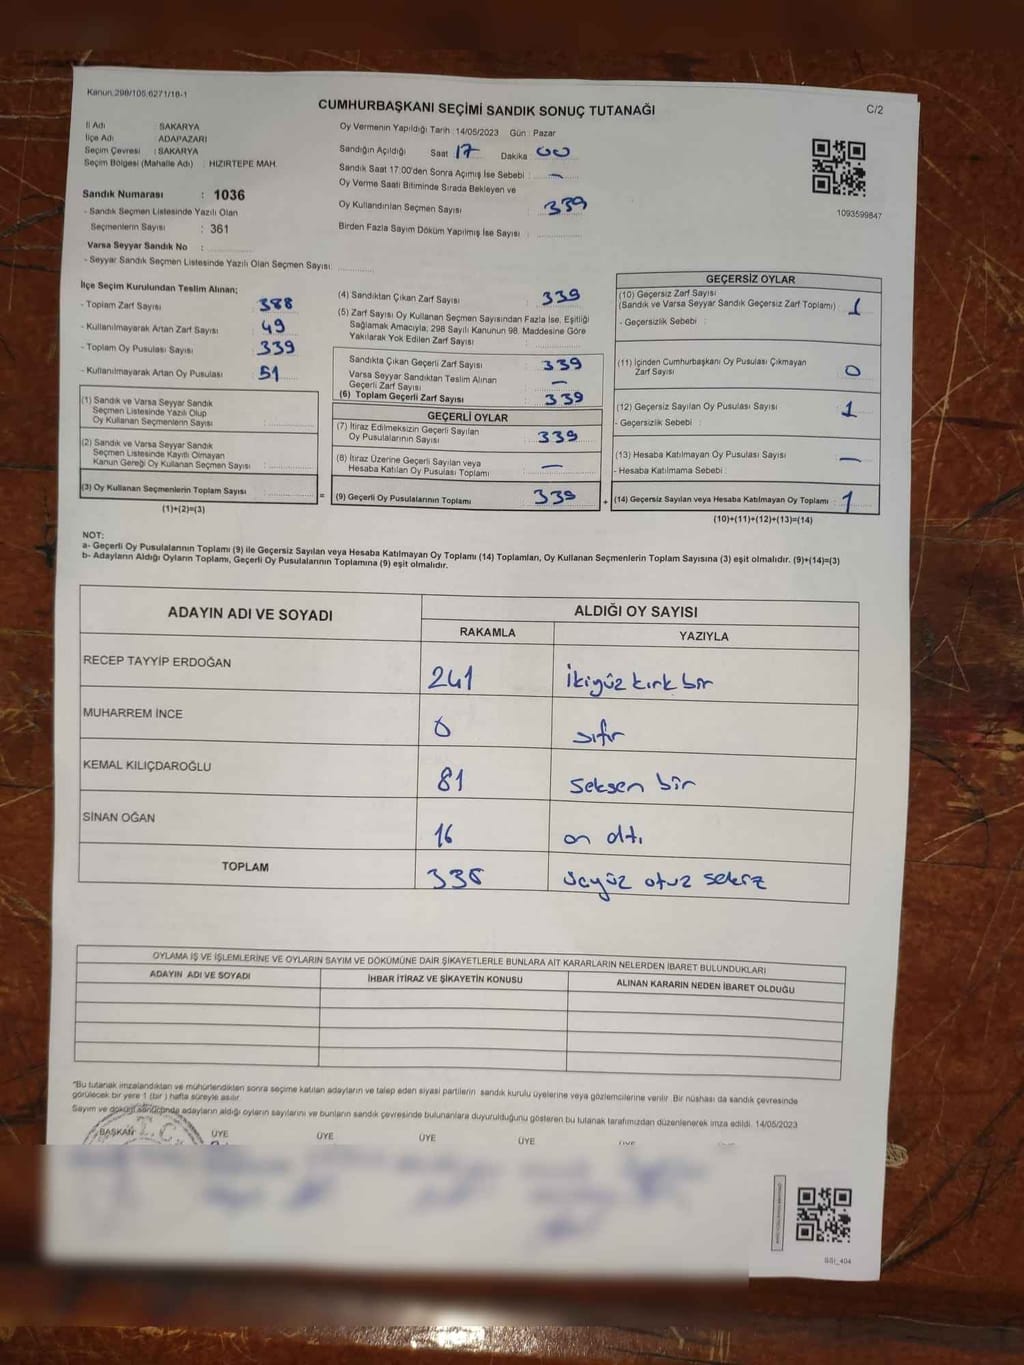 Kanun.298/105,6271/16-1
CUMHURBAŞKANI SEÇİMİ SANDIK SONUÇ TUTANAĞI
C/2
İl Adı : SAKARYA
İlçe Adı : ADAPAZARI
Seçim Çevresi : SAKARYA
Seçim Bölgesi (Mahalle Adı) : HIZIRTEPE MAH.
Oy Vermenin Yapıldığı Tarih : 14/05/2023 Gün : Pazar
Sandığın Açıldığı Saat 17 Dakika 00
Sandık Saat 17:00'den Sonra Açımış İse Sebebi : -
Oy Verme Saati Bitiminde Sırada Bekleyen ve
Oy Kullandırılan Seçmen Sayısı : 339
Birden Fazla Sayım Döküm Yapılmış İse Sayısı :
1093599847
Sandık Numarası : 1036
- Sandık Seçmen Listesinde Yazılı Olan
Seçmenlerin Sayısı : 361
Varsa Seyyar Sandık No :
- Seyyar Sandık Seçmen Listesinde Yazılı Olan Seçmen Sayısı:
İlçe Seçim Kurulundan Teslim Alınan;
- Toplam Zarf Sayısı : 388
- Kullanılmayarak Artan Zarf Sayısı : 49
- Toplam Oy Pusulası Sayısı : 339
- Kullanılmayarak Artan Oy Pusulası : 51
(1) Sandık ve Varsa Seyyar Sandık
Seçmen Listesinde Yazılı Olup
Oy Kullanan Seçmenlerin Sayısı :
(2) Sandık ve Varsa Seyyar Sandık
Seçmen Listesinde Kayıtlı Olmayan
Kanun Gereği Oy Kullanan Seçmen Sayısı :
(3) Oy Kullanan Seçmenlerin Toplam Sayısı :
(1)+(2)=(3)
(4) Sandıktan Çıkan Zarf Sayısı : 339
(5) Zarf Sayısı Oy Kullanan Seçmen Sayısından Fazla İse, Eşitliği
Sağlamak Amacıyla; 298 Sayılı Kanunun 98. Maddesine Göre
Yakılarak Yok Edilen Zarf Sayısı :
Sandıkta Çıkan Geçerli Zarf Sayısı : 339
Varsa Seyyar Sandıktan Teslim Alınan
Geçerli Zarf Sayısı : -
(6) Toplam Geçerli Zarf Sayısı : 339
GEÇERLİ OYLAR
(7) İtiraz Edilmeksizin Geçerli Sayılan
Oy Pusulalarının Sayısı : 339
(8) İtiraz Üzerine Geçerli Sayılan veya
Hesaba Katılan Oy Pusulası Toplamı : -
= (9) Geçerli Oy Pusulalarının Toplamı : 339
GEÇERSİZ OYLAR
(10) Geçersiz Zarf Sayısı
(Sandık ve Varsa Seyyar Sandık Geçersiz Zarf Toplamı) : 1
- Geçersizlik Sebebi :
(11) İçinden Cumhurbaşkanı Oy Pusulası Çıkmayan
Zarf Sayısı : 0
(12) Geçersiz Sayılan Oy Pusulası Sayısı : 1
- Geçersizlik Sebebi :
(13) Hesaba Katılmayan Oy Pusulası Sayısı : -
- Hesaba Katılmama Sebebi :
+ (14) Geçersiz Sayılan veya Hesaba Katılmayan Oy Toplamı : 1
(10)+(11)+(12)+(13)=(14)
NOT:
a- Geçerli Oy Pusulalarının Toplamı (9) ile Geçersiz Sayılan veya Hesaba Katılmayan Oy Toplamı (14) Toplamları, Oy Kullanan Seçmenlerin Toplam Sayısına (3) eşit olmalıdır. (9)+(14)=(3)
b- Adayların Aldığı Oyların Toplamı, Geçerli Oy Pusulalarının Toplamına (9) eşit olmalıdır.
ADAYIN ADI VE SOYADI ALDIĞI OY SAYISI
RAKAMLA YAZIYLA
RECEP TAYYİP ERDOĞAN 241 ikiyüz kırk bir
MUHARREM İNCE 0 sıfır
KEMAL KILIÇDAROĞLU 81 seksen bir
SİNAN OĞAN 16 on altı
TOPLAM 338 üçyüz otuz sekiz
OYLAMA İŞ VE İŞLEMLERİNE VE OYLARIN SAYIM VE DÖKÜMÜNE DAİR ŞİKAYETLERLE BUNLARA AİT KARARLARIN NELERDEN İBARET BULUNDUKLARI
ADAYIN ADI VE SOYADI İHBAR İTİRAZ VE ŞİKAYETİN KONUSU ALINAN KARARIN NEDEN İBARET OLDUĞU
"Bu tutanak imzalandıktan ve mühürlendikten sonra seçime katılan adayların ve talep eden siyasi partilerin sandık kurulu üyelerine veya gözlemcilerine verilir. Bir nüshası da sandık çevresinde
görülecek bir yere 1 (bir) hafta süreyle asılır.
Sayım ve döküm sonucunda adayların aldığı oyların sayılarını ve bunların sandık çevresinde bulunanlara duyurulduğunu gösteren bu tutanak tarafımızdan düzenlenerek imza edildi. 14/05/2023
BAŞKAN ÜYE ÜYE ÜYE ÜYE ÜYE
T.C.
SSI_404